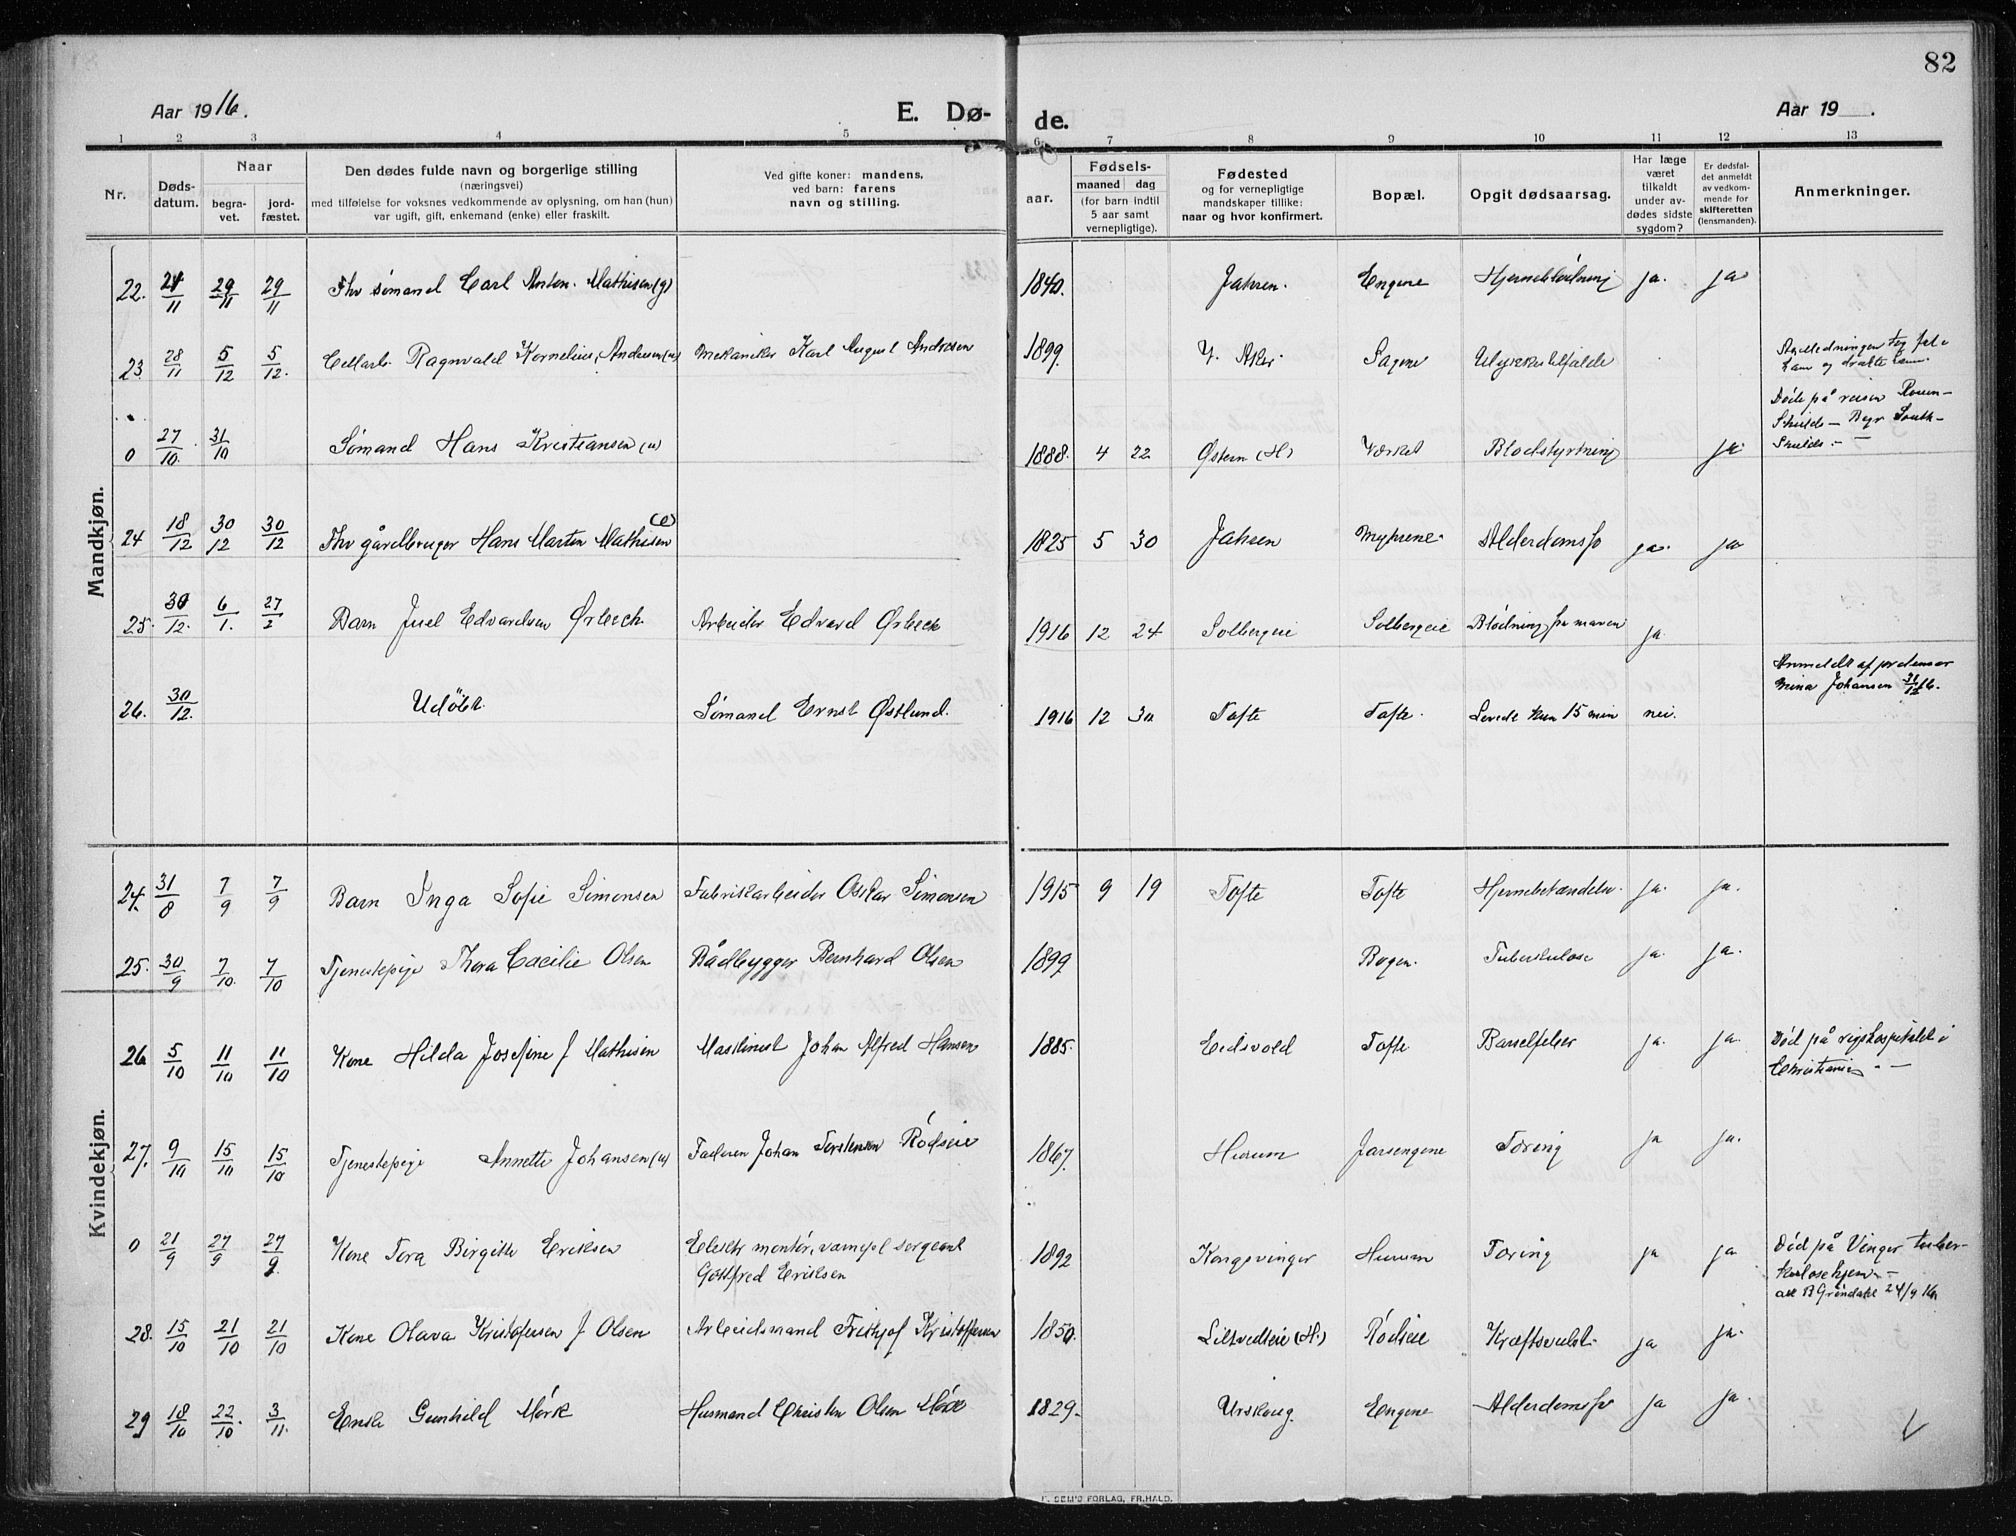 82
Aar 1916.
E. Dø-
de.
Aar 19 .
1 2 3 4 5 6 7 8 9 10 11 12 13
Nr.
Døds-
datum.
Naar
begra-
vet.
jord-
fæstet.
Den dødes fulde navn og borgerlige stilling
(næringsvei)
med tilføielse for voksnes vedkommende av oplysning, om han (hun)
var ugift, gift, enkemand (enke) eller fraskilt.
Ved gifte koner: mandens,
ved barn: farens
navn og stilling.
aar.
Fødsels-
maaned dag
(for barn indtil
5 aar samt
vernepligtige).
Fødested
og for vernepligtige
mandskaper tillike:
naar og hvor konfirmert.
Bopæl.
Opgit dødsaarsag.
Har læge
været
tilkaldt
under av-
dødes sidste
sygdom?
Er dødsfal-
det anmeldt
av vedkom-
mende for
skifteretten
(lensmanden).
Anmerkninger.
Mandkjøn.
22. 21/11 29/11 29/11 Fhv sømand Carl Anton. Mathisen (g) 1840. Jahren. Engene Hjerneblödning ja. ja
23. 28/11 5/12 5/12. Cellarb. Ragnvald Kornelius Andersen (u) Mekaniker Karl August Andresen 1899. V. Aker. Sagene Ulykkestilfælde
0 27/10. 31/10 Sømand Hans Kristiansen (u) 1888. 4 22 Østern (H) Værket Blodstyrtning ja
Döde på reisen
24 18/12 30/12 30/12 Fhv gårdbruger Hans Martin Mathisen (e) 1825 5 30 Jahren Myhrene Alderdomssv ja. ja
25. 30/12. 6/1. 27/2 Barn Juel Edvardsen Ørbeck Arbeider Edvard Ørbeck 1916 12 24 Solbergeie Solbergeie Blödning fra maven ja
26. 30/12. Udöbt. Sømand Ernst Østlund. 1916 12 30 Tofte Tofte. Levede kun 15 min nei.
Anmeldt af jordemor
Mina Johansen 31/12 16.
Kvindekjøn.
24. 31/8 7/9 7/9 Barn Inga Sofie Simonsen Fabrikarbeider Oskar Simonsen 1915 9 19 Tofte Tofte Hjernebetændelse. ja. ja.
25. 30/9 7/10. 7/10 Tjenestepige Thora Cæcilie Olsen Bådbygger Bernhard Olsen 1899 Bogen. Tuberkulose ja. ja.
26 5/10 11/10 11/10 Kone Hilda Josefine f Mathisen Maskinist Johan Alfred Hansen 1885. Eidsvold Tofte Barselfeber ja. ja.
Död på rigshospitalet i
Christiania
27. 9/10 15/10 15/10 Tjenestepige Annette Johansen (u) Faderen Johan Torstensen Rödseie 1867. Hurum Jarsengene Tæring ja ja.
0 21/9 27/9 27/9. Kone Tora Birgitte Eriksen Elektr montör, værnepl sergeant
Gottfred Eriksen 1892 Kongsvinger Hurum Tæring ja ja
Död på Vinger tuber-
kulosehjem
att B Gröndahl 24/9 16
28. 15/10 21/10 21/10 Kone Olava Kristofersen f Olsen Arbeidsmand Frithjof Kristoffersen 1850. Liltvedteie (H.) Rödseie Kræftsvulst. ja ja.
29 18/10 22/10. 3/11. Enke Gunhild Mörk Husmand Christen Olsen Mörk 1829. Urskoug Engene Alderdomssv ja ja.
F. SEM'S FORLAG, FR.HALD.